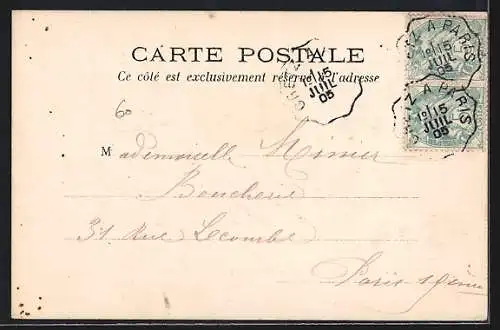 CARTE POSTALE
Ce côté est exclusivement réservé à l'adresse
A PARIS
15
JUIL
05
A PARIS
15
JUIL
05
15
JUIL
05
60
Mademoiselle
Boucherie
31 Rue Lecourbe
Paris